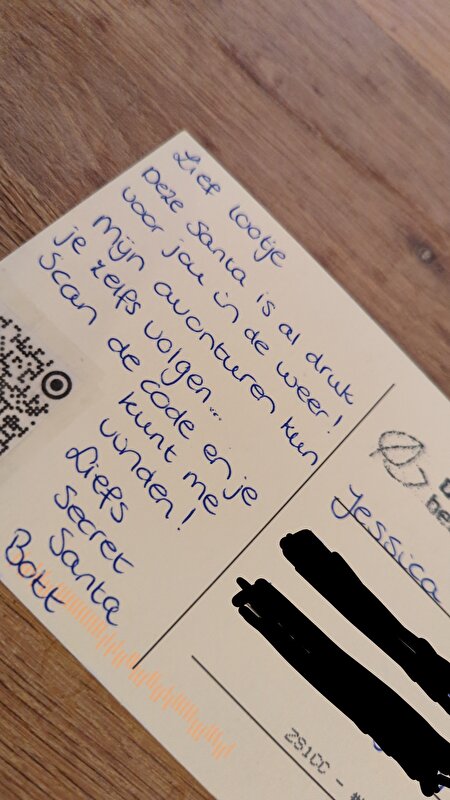 Lief lootje
Deze Santa is al druk
voor jou in de weer!
Mijn avonturen kun
je zelfs volgen...
Scan de code en je
kunt me
vinden!
Liefs
Secret
Santa
Bott
Jessica
2S1CC - #